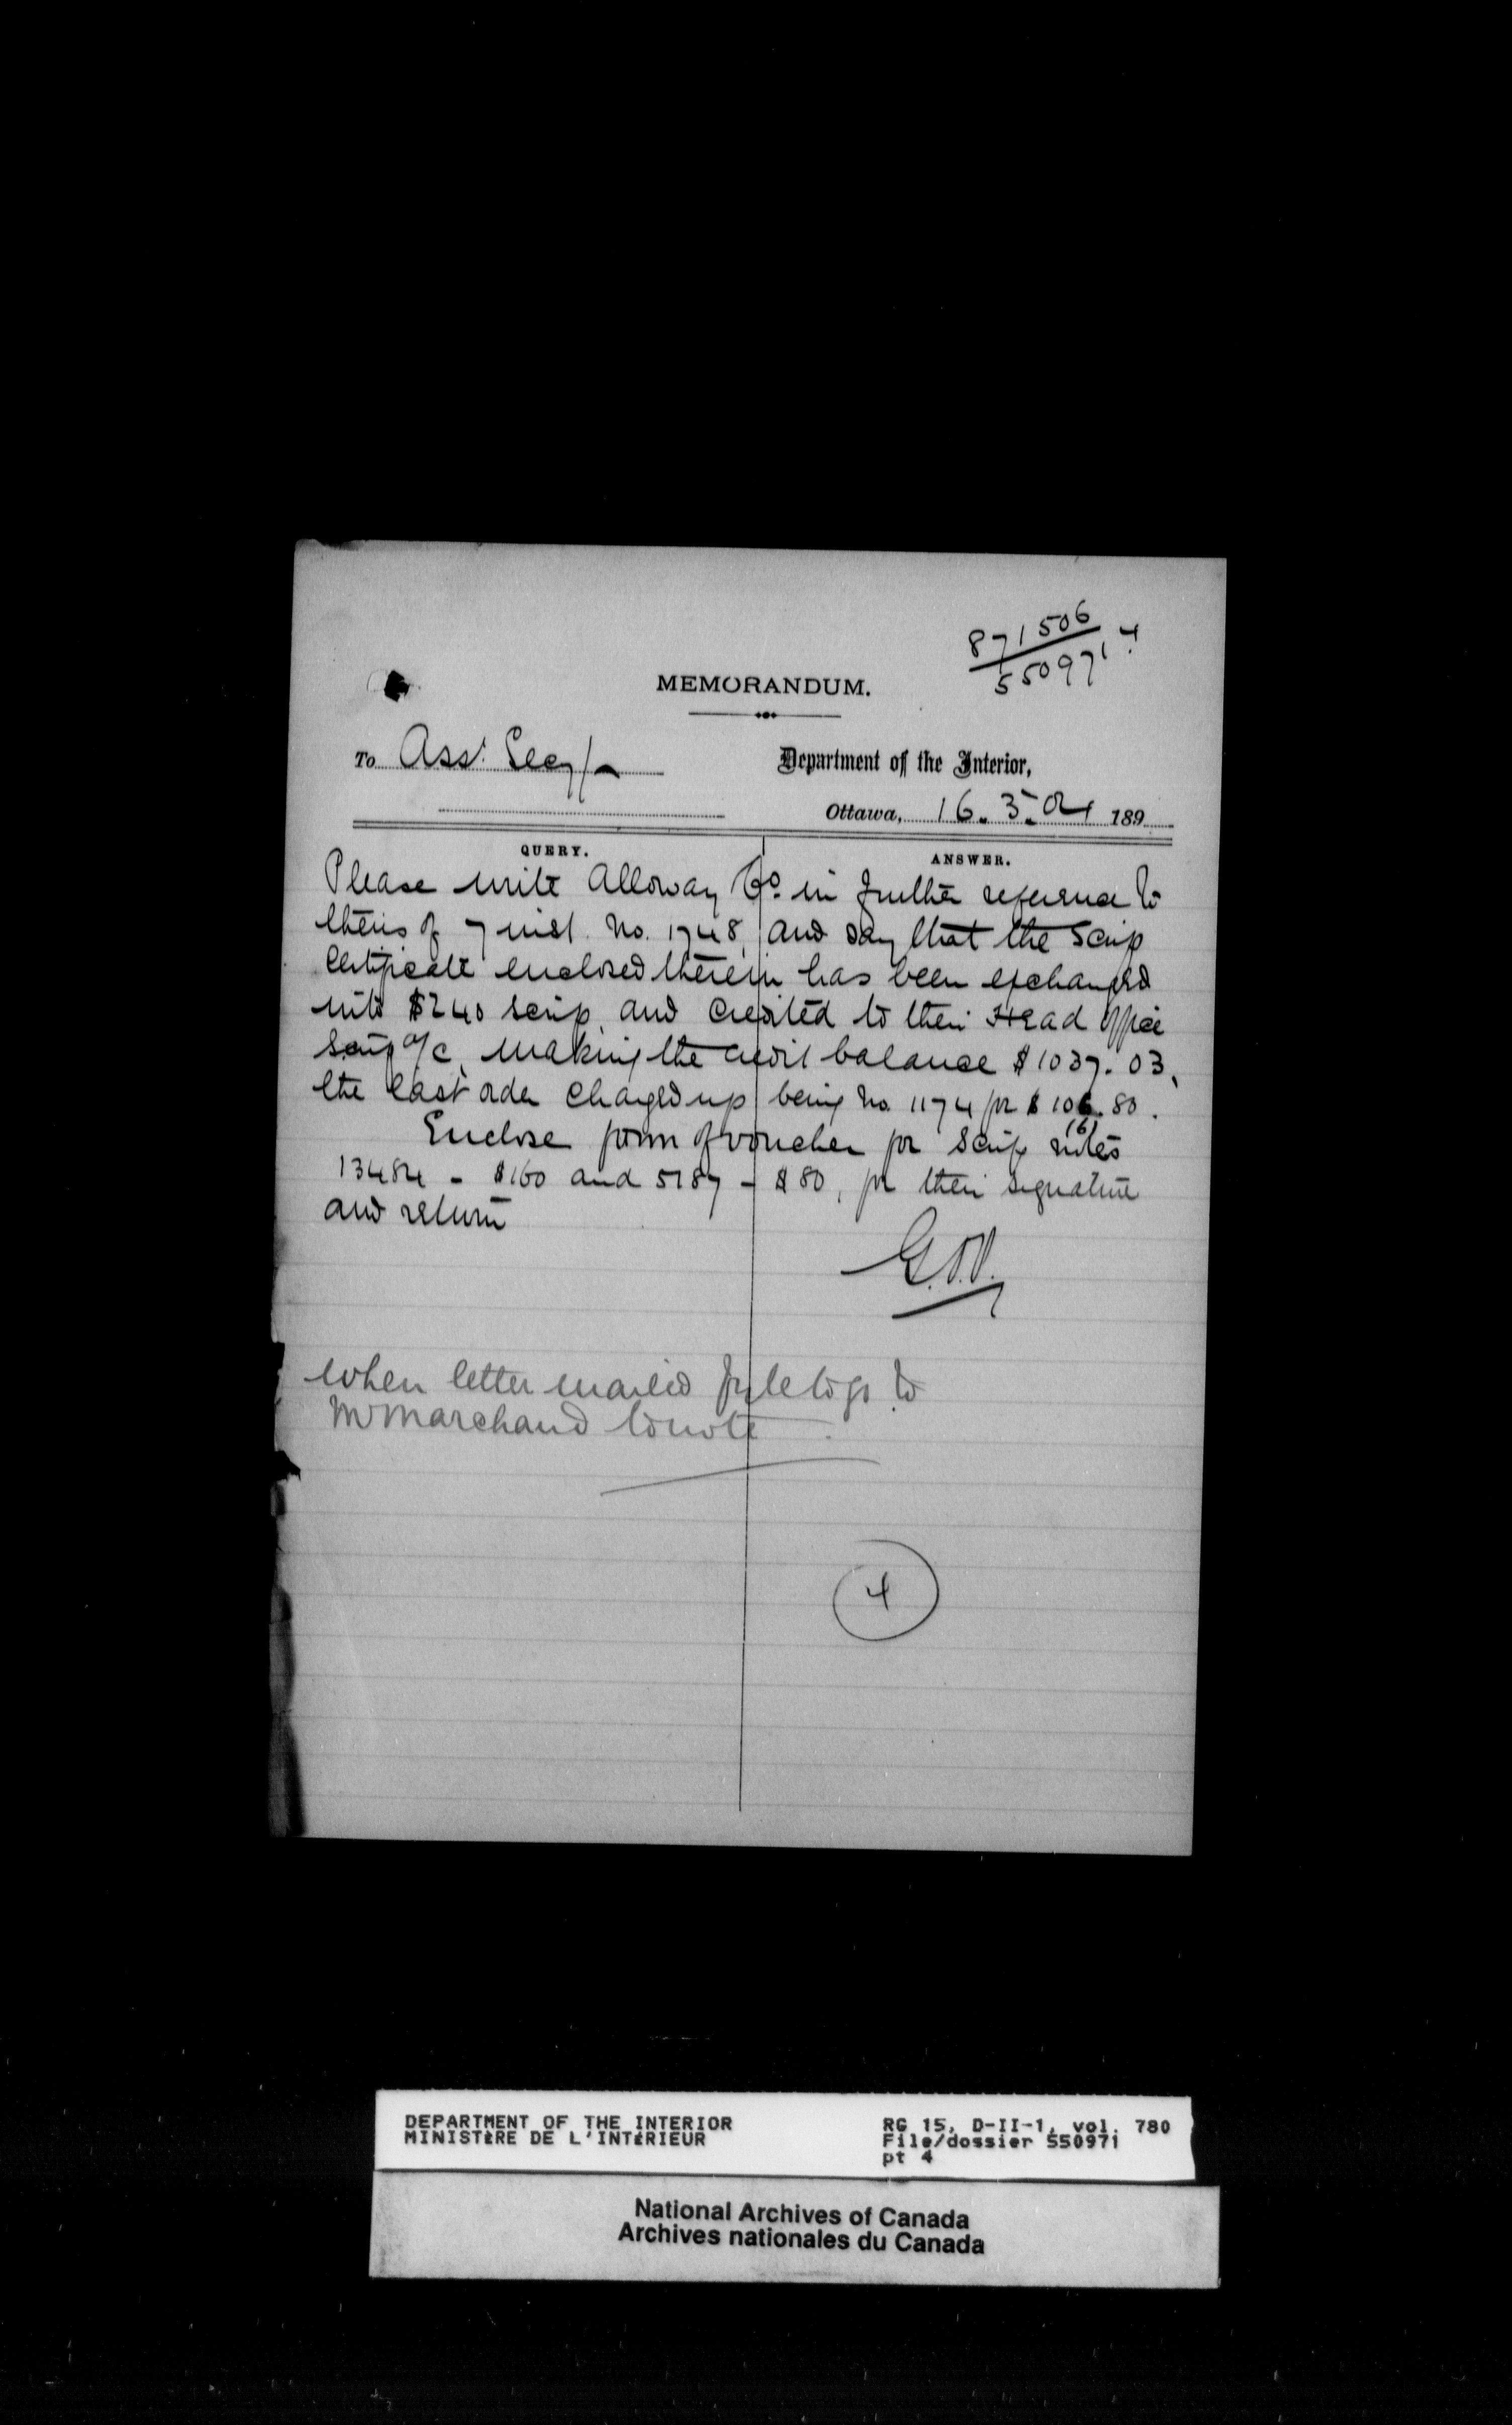 871506
550971 4
MEMORANDUM.
To Asst. Secy
Department of the Interior,
Ottawa, 16.5.04 189
QUERY.
ANSWER.
Please write Alloway Co. in further reference to
theirs of 7 inst. No. 1748, and say that the Scrip
Certificate enclosed therein has been exchanged
into $240 scrip, and credited to their Head Office
Scrip a/c, making the credit balance $1037.03,
the last order charged up being No. 1174 for $106.80.
(6)
Enclose form of voucher for Scrip notes
13484 - $160 and 5187 - $80, for their signature
and return
When letter mailed file to go to
Mr Marchand to note
4
DEPARTMENT OF THE INTERIOR
MINISTÈRE DE L'INTÉRIEUR
RG 15, D-II-1, vol. 780
File/dossier 550971
pt 4
National Archives of Canada
Archives nationales du Canada